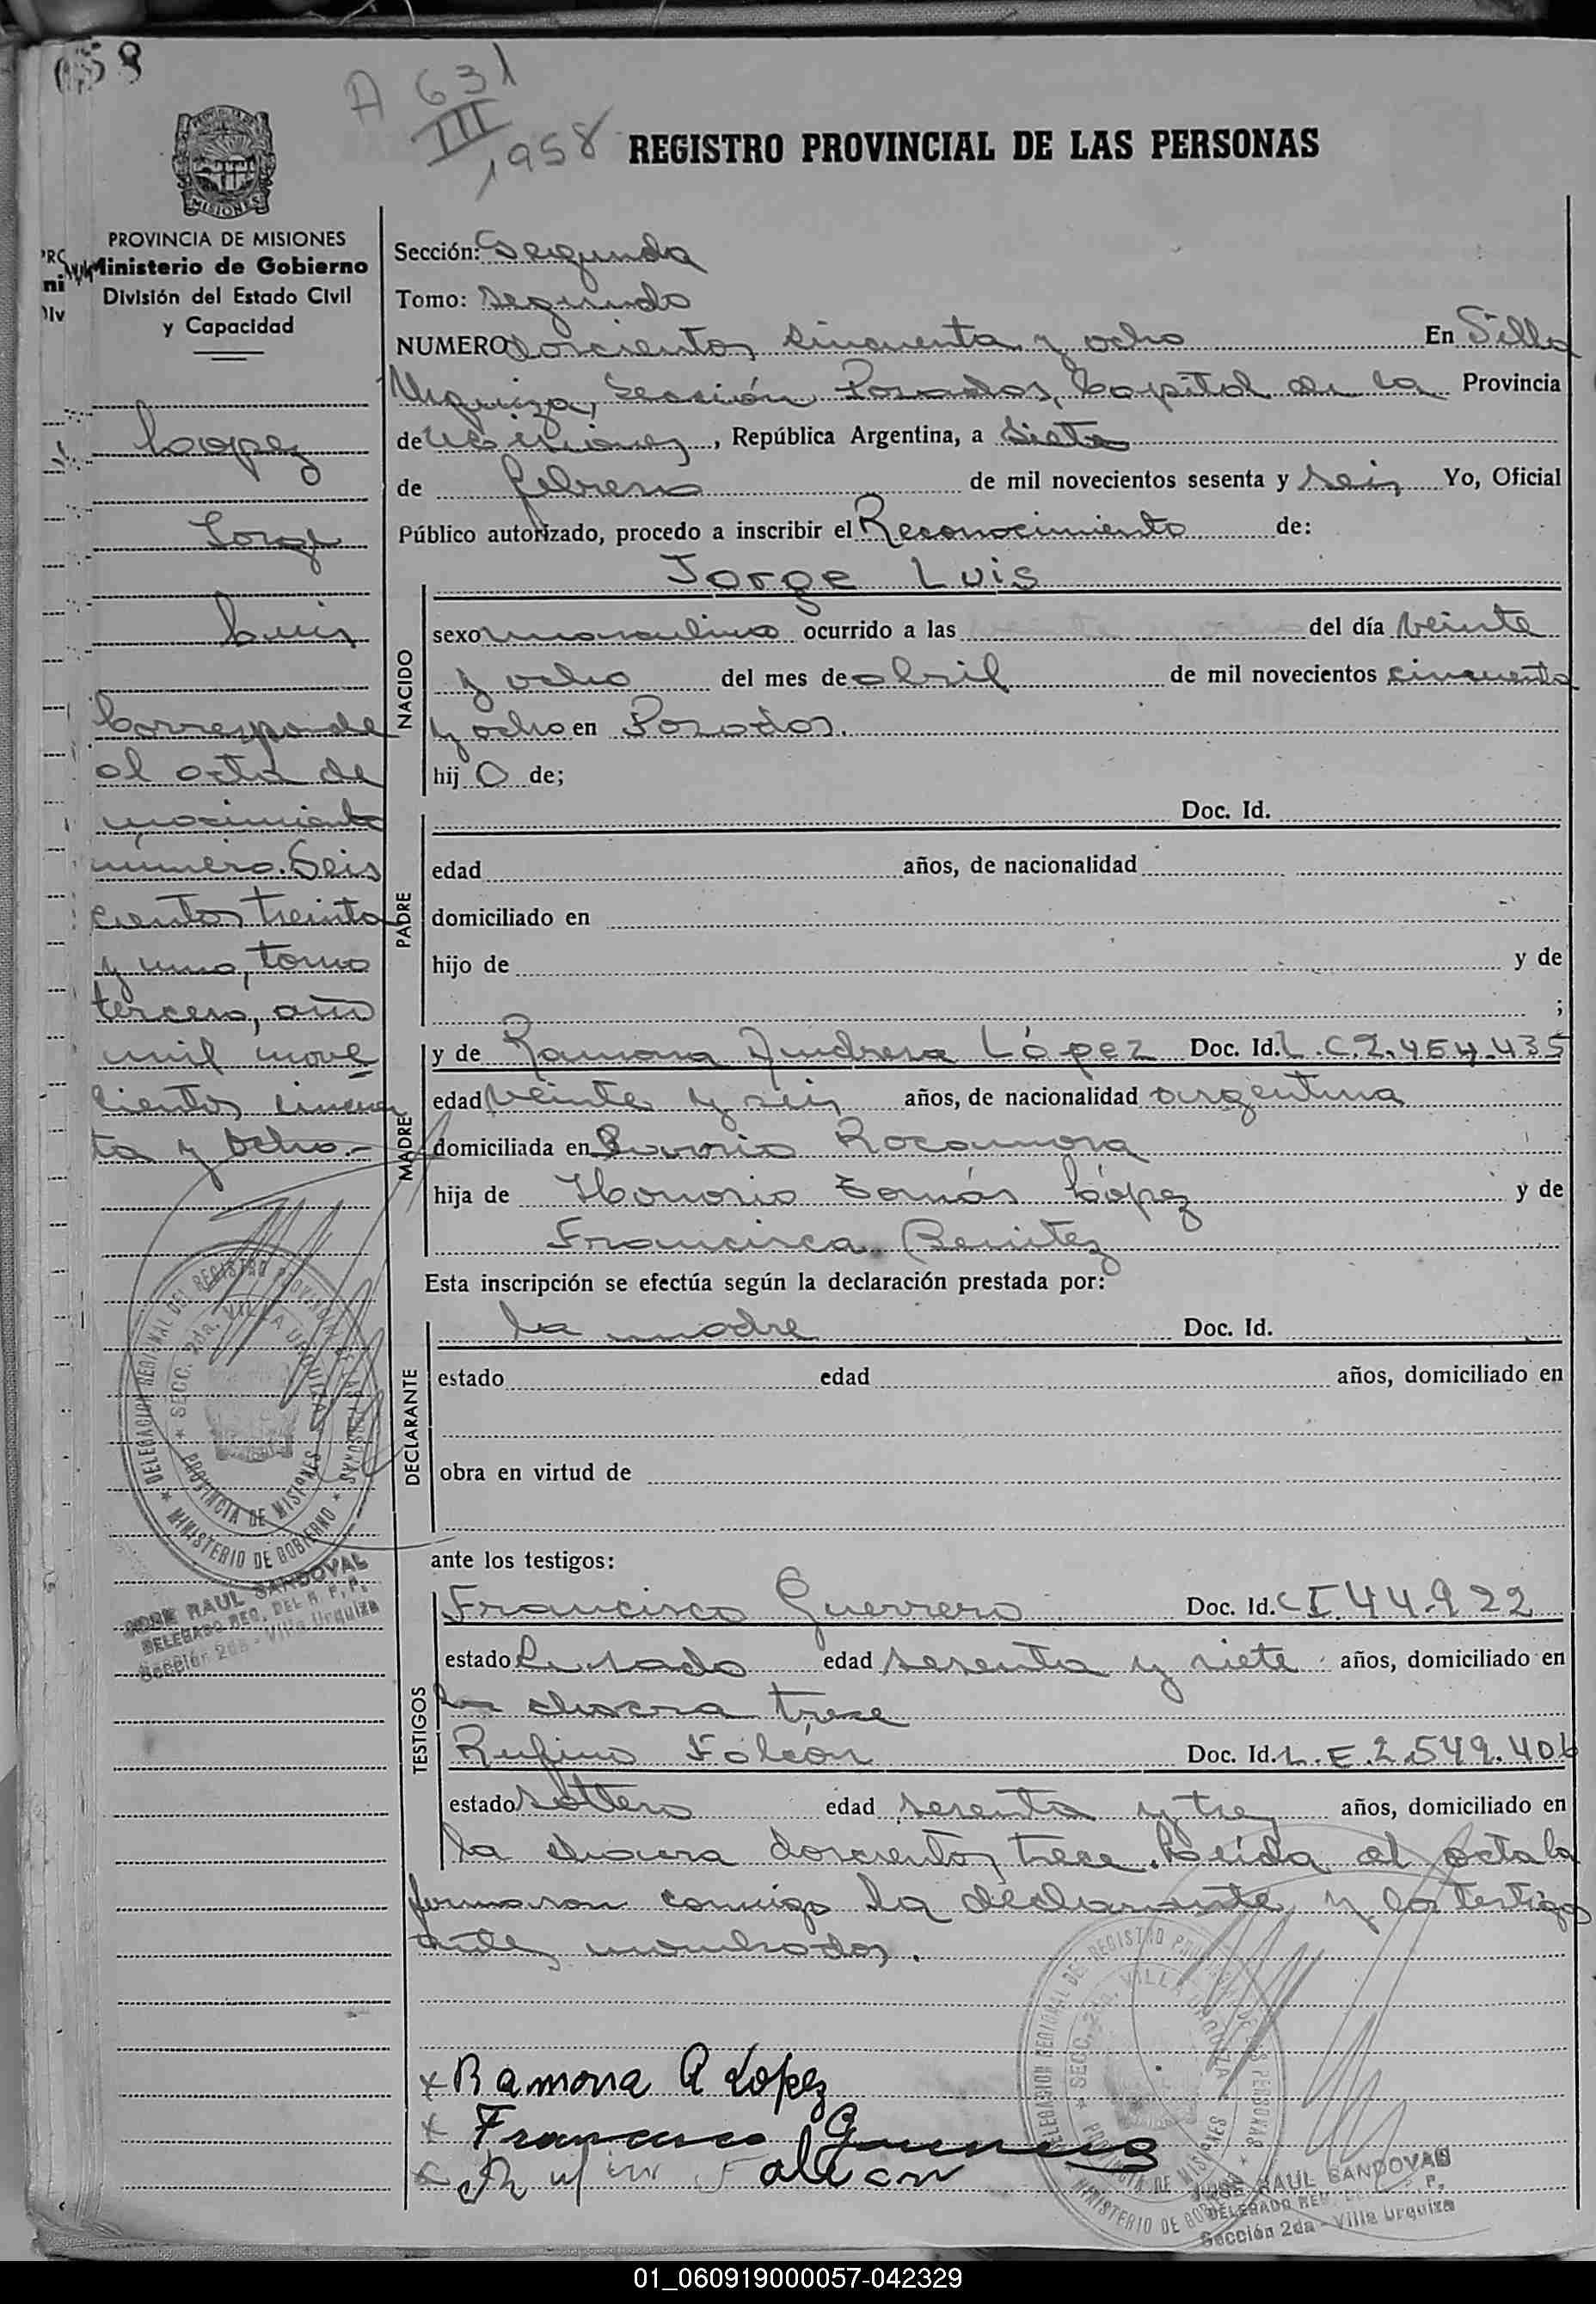 058
A 631
III
1958
REGISTRO PROVINCIAL DE LAS PERSONAS
PROVINCIA DE MISIONES
Ministerio de Gobierno
División del Estado Civil
y Capacidad
Lopez
Jorge
Luis
Corresponde
al acta de
nacimiento
número. Seis
cientos treinta
y uno, tomo
tercero, año
mil nove
cientos cincuen
ta y ocho.-
Sección: Segunda
Tomo: Segundo
NUMERO doscientos cincuenta y ocho En Villa
Urquiza, Sección Posadas, Capital de la Provincia
de Misiones, República Argentina, a Siete
de febrero de mil novecientos sesenta y seis Yo, Oficial
Público autorizado, procedo a inscribir el Reconocimiento de:
Jorge Luis
NACIDO
sexo masculino ocurrido a las del día veinte
y ocho del mes de abril de mil novecientos cincuenta
y ocho en Posadas.
hij o de;
PADRE
Doc. Id.
edad años, de nacionalidad
domiciliado en
hijo de y de
;
MADRE
y de Ramona Andresa López Doc. Id. L.C.2.454.435
edad veinte y seis años, de nacionalidad argentina
domiciliada en Barrio Rocamora
hija de Honorio Tomás López y de
Francisca Benitez
Esta inscripción se efectúa según la declaración prestada por:
DECLARANTE
la madre Doc. Id.
estado edad años, domiciliado en
obra en virtud de
ante los testigos:
TESTIGOS
Francisco Guerrero Doc. Id. C I 44.922
estado Casado edad sesenta y siete años, domiciliado en
la chacra trece
Rufino Falcón Doc. Id. L.E.2.549.406
estado soltero edad sesenta y tres años, domiciliado en
la chacra doscientos trece. Leída el acta la
firmaron conmigo la declarante y los testigos
antes nombrados.
x Ramona A Lopez
x Francisco Guerrero
x Rufino Falcon
DELEGACION REGIONAL DEL REGISTRO PROVINCIAL DE LAS PERSONAS
SECC. 2da. VILLA URQUIZA
PROVINCIA DE MISIONES
MINISTERIO DE GOBIERNO
JOSE RAUL SANDOVAL
DELEGADO REG. DEL R. P. P.
Sección 2da - Villa Urquiza
DELEGACION REGIONAL DEL REGISTRO PROVINCIAL DE LAS PERSONAS
SECC. 2da. VILLA URQUIZA
PROVINCIA DE MISIONES
MINISTERIO DE GOBIERNO
JOSE RAUL SANDOVAL
DELEGADO REG. DEL R. P. P.
Sección 2da - Villa Urquiza
01_060919000057-042329